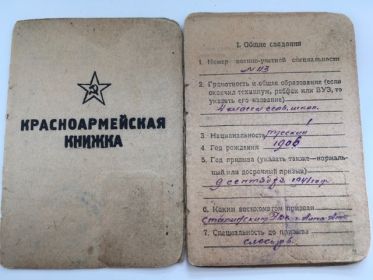 КРАСНОАРМЕЙСКАЯ
КНИЖКА
I. Общие сведения
1. Номер военно-учетной специальности
№ 113
2. Грамотность и общее образование (если
окончил техникум, рабфак или ВУЗ, то
указать его название)
4 класса
3. Национальность русский
4. Год рождения 1906
5. Год призыва (указать также—нормаль-
ный или досрочный призыв)
9 сентября 1941
6. Каким военкоматом призван
Сталинским РВК
7. Специальность до призыва
слесарь